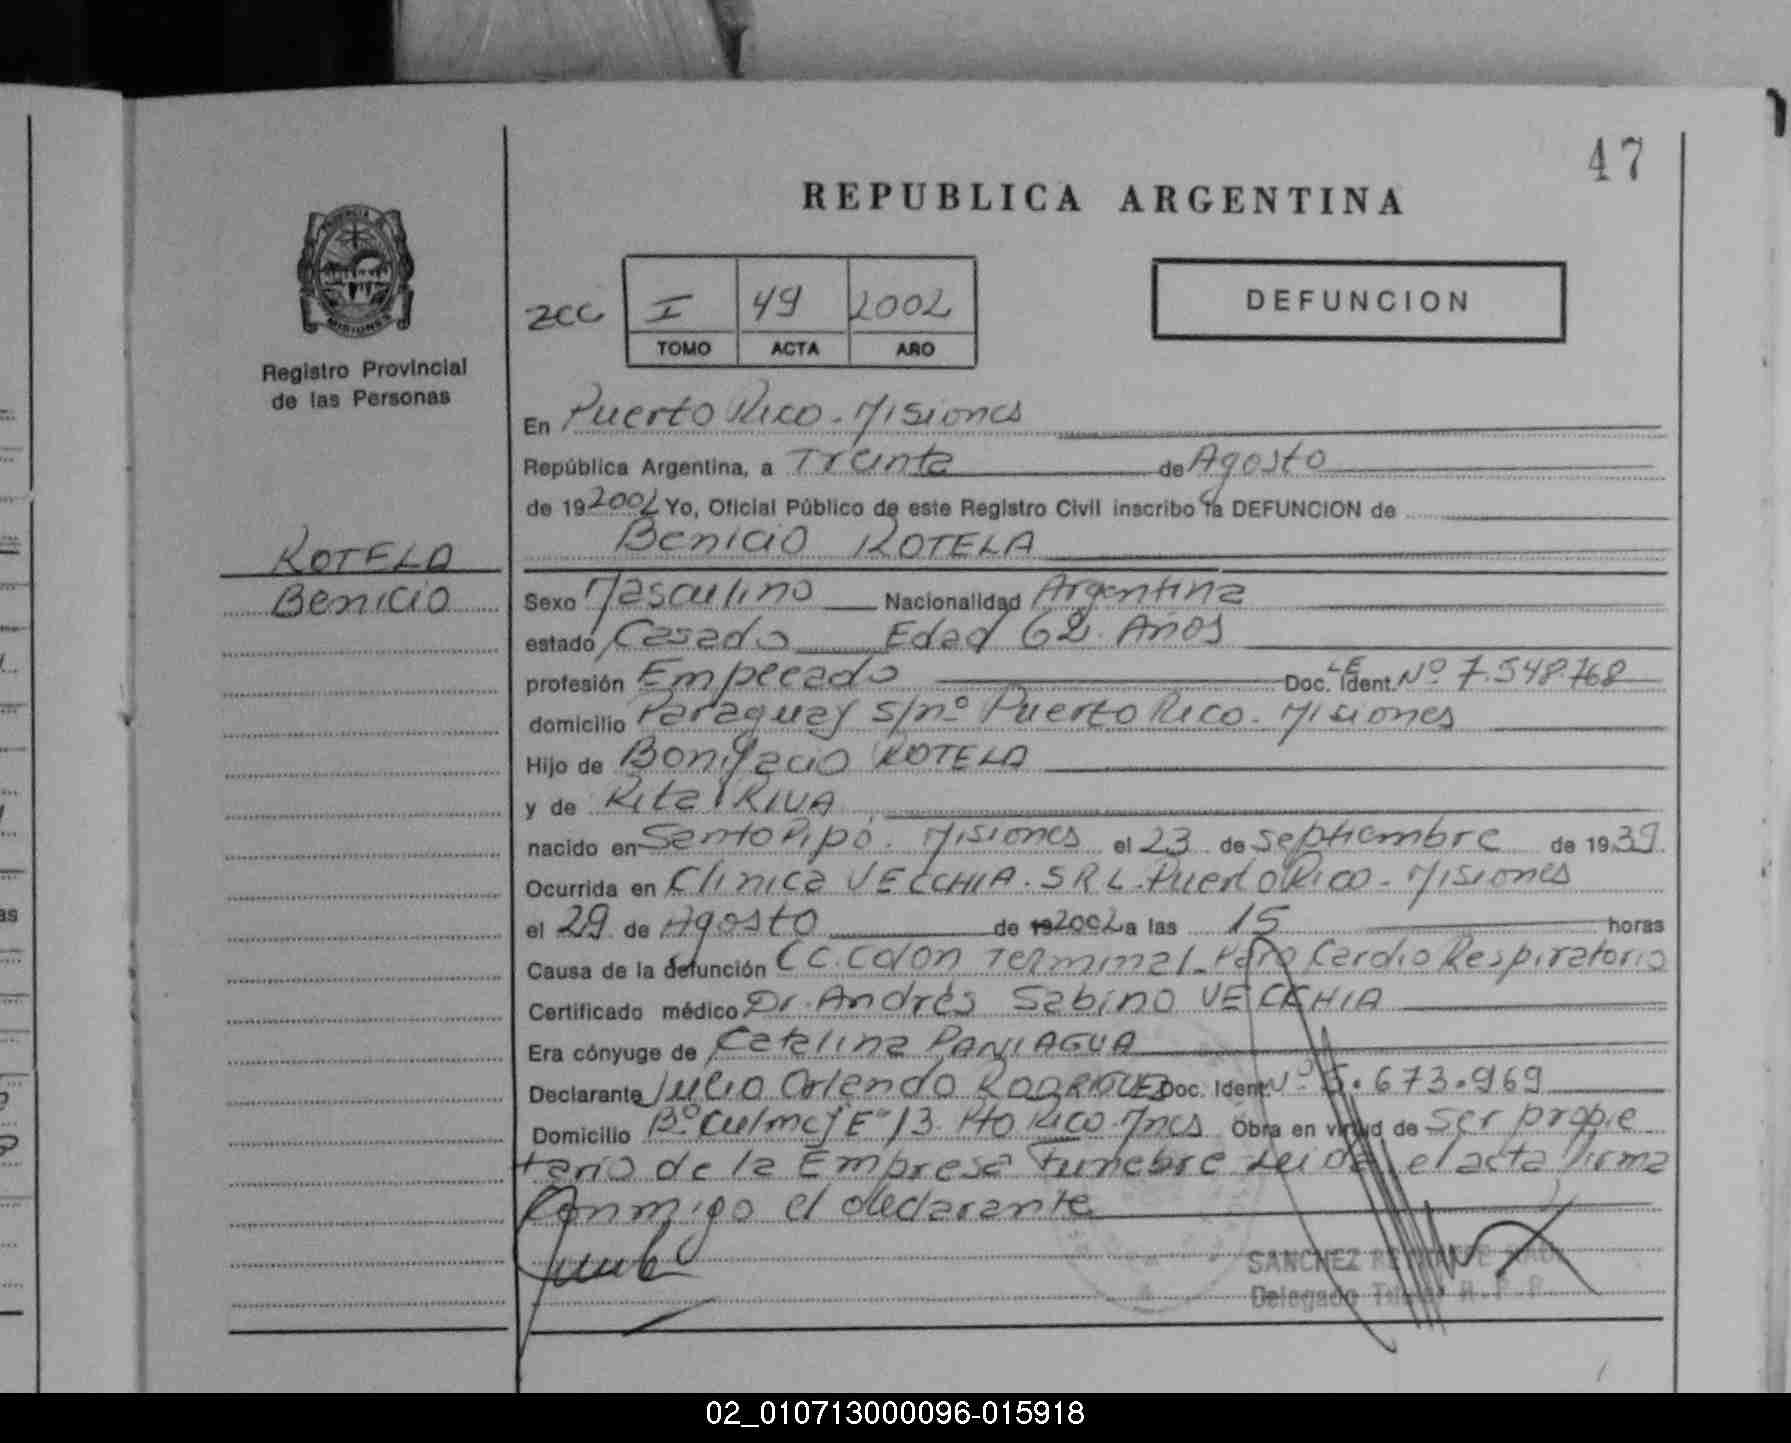 47
REPUBLICA ARGENTINA
PROVINCIA
MISIONES
Registro Provincial
de las Personas
DEFUNCION
I 49 2002
TOMO ACTA AÑO
En Puerto Rico - Misiones
República Argentina, a Treinta de Agosto
de 19 2002 Yo, Oficial Público de este Registro Civil inscribo la DEFUNCION de
Benicio ROTELA
ROTELA
Benicio
Sexo Masculino Nacionalidad Argentina
estado Casado Edad 62 Años
profesión Empleado Doc. Ident. LE Nº 7.548.768
domicilio Paraguay s/nº Puerto Rico - Misiones
Hijo de Bonifacio ROTELA
y de Rita RIVA
nacido en Santo Pipó. Misiones el 23 de Septiembre de 1939.
Ocurrida en Clinica VECCHIA. SRL. Puerto Rico - Misiones
el 29 de Agosto de 19 2002 a las 15 horas
Causa de la defunción CC. Colon Terminal - Paro Cardio Respiratorio
Certificado médico Dr. Andrés Sabino VECCHIA
Era cónyuge de Catalina PANIAGUA
Declarante Julio Orlando RODRIGUEZ Doc. Ident. Nº 5.673.969
Domicilio Bº Culmey E-13. Pto Rico. Mnes Obra en virtud de ser propie
tario de la Empresa Funebre Leida el acta firma
Conmigo el declarante
SANCHEZ
Delegado R.P.P.
02_010713000096-015918